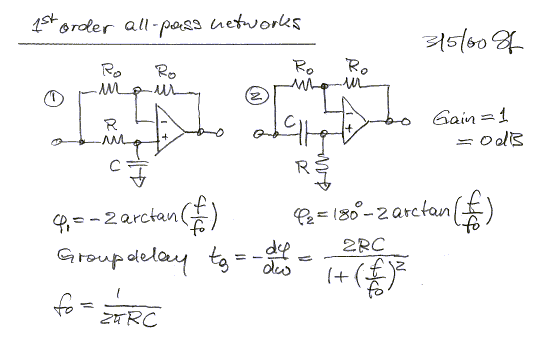 1st order all-pass networks
3/5/00
① R₀ R₀ R C - +
② R₀ R₀ C R - +
Gain = 1
= 0 dB
φ₁ = -2 arctan(f/f₀)
φ₂ = 180° - 2 arctan(f/f₀)
Group delay t_g = -dφ/dω = 2RC/(1+(f/f₀)²)
f₀ = 1/(2πRC)